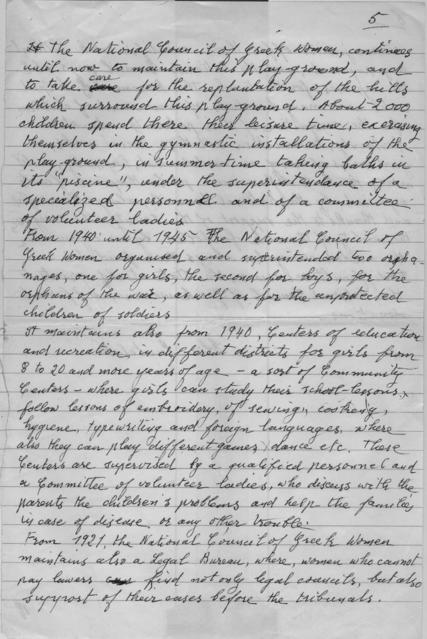 5
The National Council of Greek Women, continues
until now to maintain this play-ground, and
to take care for the replantation of the hills
which surround this play-ground. About 2000
children spend there their leisure time, exercising
themselves in the gymnastic installations of the
play-ground, in summertime taking baths in
its "piscine", under the superintendance of a
specialized personnel and of a committee
of volunteer ladies
From 1940 until 1945 The National Council of
Greek Women organised and superintended two orpha-
nages, one for girls, the second for boys, for the
orphans of the war, as well as for the unprotected
children of soldiers
It maintains also from 1940, Centers of education
and recreation, in different districts for girls from
8 to 20 and more years of age - a sort of Community
Centers - where girls can study their school-lessons,
follow lessons of embroidery, of sewing, cooking,
hygiene, typewriting and foreign languages, where
also they can play different games, dance etc. These
Centers are supervised by a qualified personnel and
a Committee of volunteer ladies, who discuss with the
parents the children's problems and help the families
in case of disease or any other trouble.
From 1921, the National Council of Greek Women
maintains also a Legal Bureau, where, women who cannot
pay lawers find not only legal councils, but also
support of their cases before the tribunals.